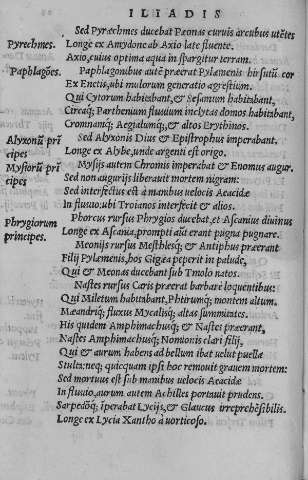 ILIADIS
Sed Pyræchmes ducebat Pæonas curuis arcubus utẽtes
Pyrechmes. Longe ex Amydone ab Axio late fluente.
Axio, cuius optima aqua in spargitur terram.
Paphlagões. Paphlagonibus autẽ præerat Pylæmenis hirsutũ cor
Ex Enetis, ubi mulorum generatio agrestium.
Qui Cytorum habitabant, & Sesamum habitabant,
Circaq; Parthenium fluuium inclytas domos habitabant,
Cromnamq; Aegialumq;, & altos Erythinos.
Alyxonũ prĩ Sed Alyxonis Dius & Epistrophus imperabant.
cipes Longe ex Alybe, unde argenti est origo.
Mysiorũ prĩ Mysijs autem Chromis imperabat & Enomus augur.
cipes Sed non augurijs liberauit mortem nigram:
Sed interfectus est à manibus uelocis Aeacidæ
In fluuio, ubi Troianos interfecit & alios.
Phrygiorum Phorcus rursus Phrygios ducebat, et Ascanius diuinus
principes. Longe ex Ascania, prompti aũt erant pugna pugnare.
Meonijs rursus Mesthlesq; & Antiphus præerant
Filij Pylæmenis, hos Gigæa peperit in palude,
Qui & Meonas ducebant sub Tmolo natos.
Nastes rursus Caris præerat barbare loquentibus:
Qui Miletum habitabant, Phtirumq; montem altum.
Mæandriq; fluxus Mycalisq; altas summitates.
His quidem Amphimachusq; & Nastes præerant,
Nastes Amphimachusq; Nomionis clari filij,
Qui & aurum habens ad bellum ibat uelut puella
Stulte: neq; quicquam ipsi hoc remouit grauem mortem:
Sed mortuus est sub manibus uelocis Aeacidæ
In fluuio, aurum autem Achilles portauit prudens.
Sarpedõq; ĩperabat Lycijs, & Glaucus irreprehẽsibilis.
Longe ex Lycia Xantho à uorticoso.